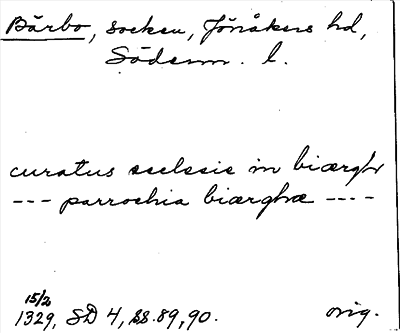 Bärbo, socken, Jönåkers hd,
Söderm. l.
curatus ecclesie in biærghr
--- parrochia biærghæ ----
15/2
1329, SD 4, ss. 89, 90. orig.